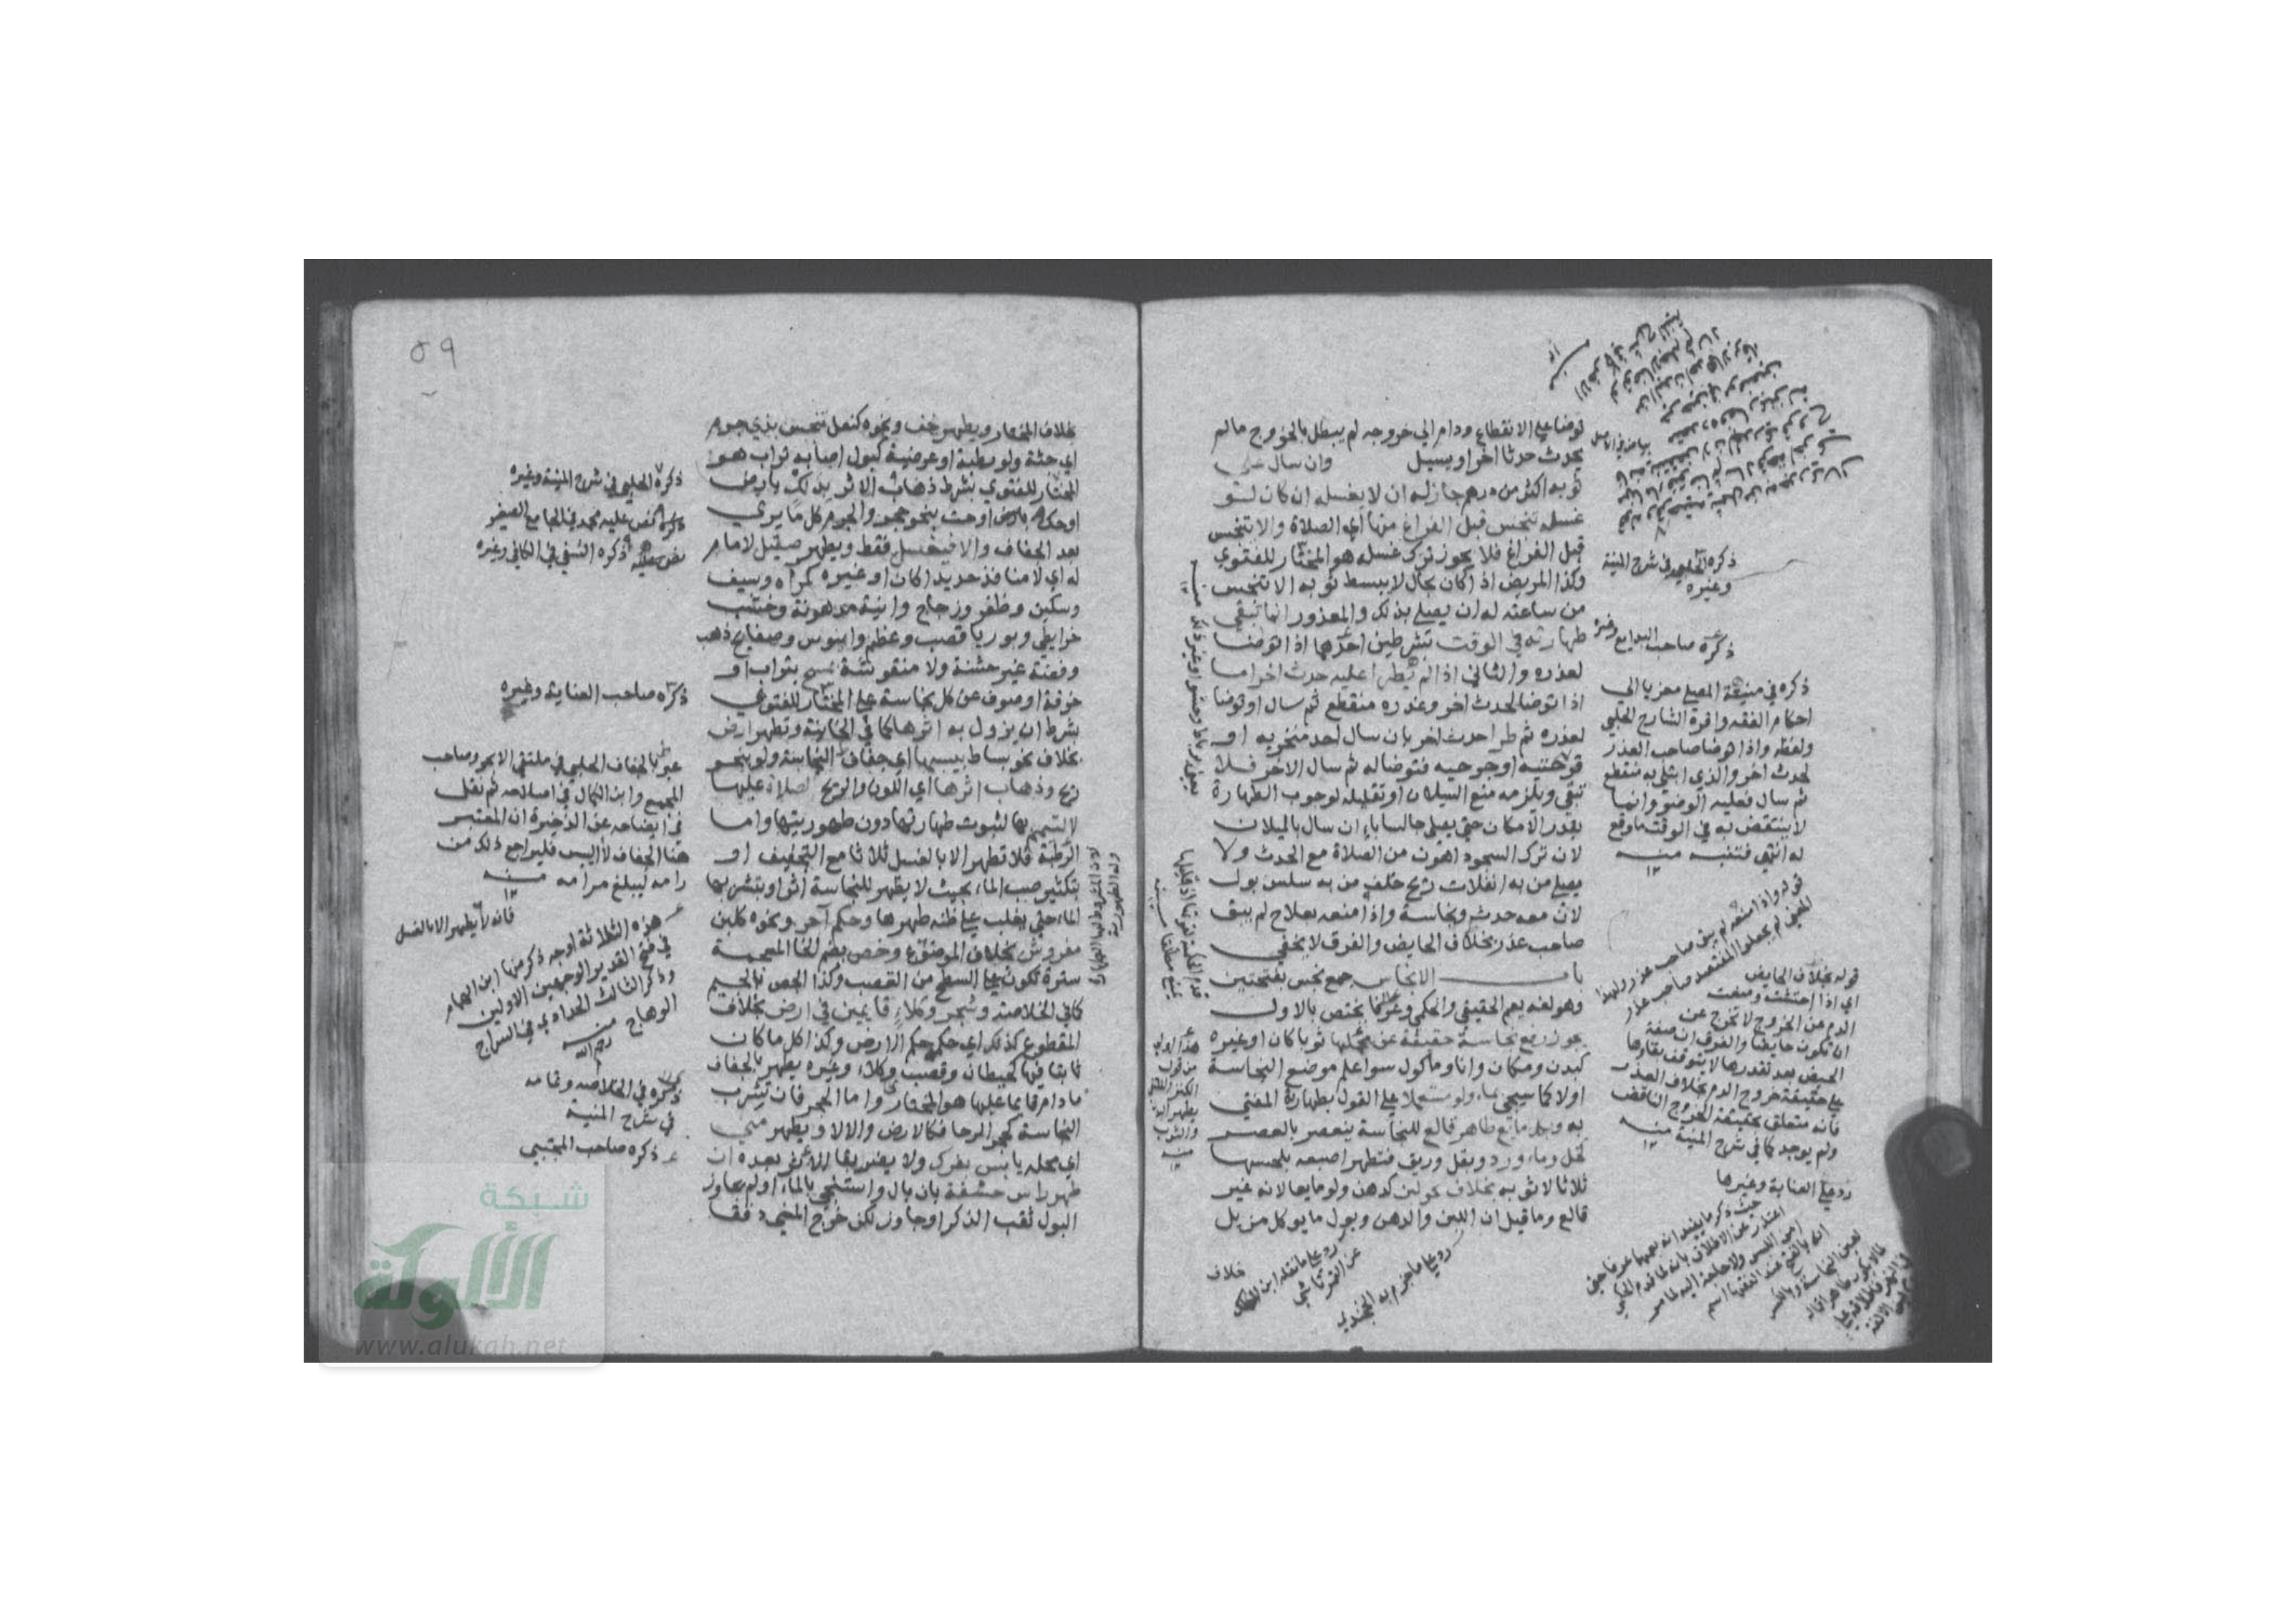 توضا على الانقطاع ودام الى خروجه لم يبطل بالخروج مالم
يحدث حدثا اخر او يسيل وان سال على
ثوبه اكثر من درهم جاز له ان لا يغسله ان كان لو
غسله تنجس قبل الفراغ منها اي الصلاة والا تنجس
قبل الفراغ فلا يجوز ترك غسله هو المختار للفتوى
وكذا المريض اذا كان بحال لا يبسط ثوبه الا تنجس
من ساعته له ان يصلي بذلك والمعذور انما تبقى
طهارته في الوقت بشرطين احدهما اذا توضا
لعذره والثاني اذا لم يطرا عليه حدث اخر اما
اذا توضا لحدث اخر وعذره منقطع ثم سال او توضا
لعذره ثم طرا حدث اخر بان سال احد منخريه او
قرحتيه او جرحيه فتوضا له ثم سال الاخر فلا
تبقى ويلزمه منع السيلان او تقليله لوجوب الطهارة
بقدر الامكان حتى يصلي جالسا بايما ان سال بالميلان
لان ترك السجود اهون من الصلاة مع الحدث ولا
يصلي من به انفلات ريح خلف من به سلس بول
لان معه حدث ونجاسة واذا منعه بعلاج لم يبق
صاحب عذر بخلاف الحايض والفرق لا يخفى
باب الانجاس جمع نجس بفتحتين
وهو لغة يعم الحقيقي والحكمي وعرفا يختص بالاول
يجوز رفع نجاسة حقيقة عن محلها ثوبا كان او غيره
كبدن ومكان وانا وماكول سوا علم موضع النجاسة
اولا كما سيجي بماء ولو مستعملا على القول بطهارته المفتى
به وبكل مايع طاهر قالع للنجاسة ينعصر بالعصر
كخل وماء ورد وبقل وريق فتطهر اصبعه بلحسها
ثلاثا لا ثوبه بخلاف نحو لبن كدهن ولو مايعا لانه غير
قالع وما قيل ان اللبن والدهن وبول ما يوكل مزيل
خلاف
ذكره الحلبي في شرح المنية
وغيره
ذكره صاحب البدايع وغيره
ذكره في منية المصلي معزيا الى
احكام الفقه واقره الشارح الحلبي
ولفظه واذا توضا صاحب العذر
لحدث اخر والذي ابتلي به منقطع
ثم سال فعليه الوضوء وانما
لا ينتقض به في الوقت ما وقع
له انتهى فتنبه منه
قوله بخلاف الحايض
اي اذا احتشت ومنعت
الدم من الخروج لا تخرج عن
ان تكون حايضا والفرق ان صفة
الحيض بعد تقدرها لا يتوقف بقاؤها
على حقيقة خروج الدم بخلاف العذر
فانه متعلق بحقيقة الخروج الناقض
ولم يوجد كما في شرح المنية منه
رد على العناية وغيرها
رد على ما جزم به الخجندي
٥٩
بخلاف المختار ويطهر خف ونحوه كنعل تنجس بذي جرم
اي جثة ولو رطبة او عرضية كبول اصابه تراب هو
المختار للفتوى بشرط ذهاب الاثر بدلك بارض
او حك بارض او حت بنحو حجر والجرم كل ما يرى
بعد الجفاف والا فيغسل فقط ويطهر صقيل لا مسام
له اي لا منافذ حديدا كان او غيره كمرآه وسيف
وسكين وظفر وزجاج وانية مدهونة وخشب
خرايطي وبوريا قصب وعظم وابنوس وصفايح ذهب
وفضة غير خشنة ولا منقوشة بمسح بتراب او
خرقة او صوف عن كل نجاسة على المختار للفتوى
بشرط ان يزول به اثرها كما في الخانية وتطهر ارض
بخلاف نحو بساط بيبسها اي جفاف النجاسة ولو بنحو
ريح وذهاب اثرها اي اللون والريح لصلاة عليها
لا لتيمم بها لثبوت طهارتها دون طهوريتها واما
الرطبة فلا تطهر الا بالغسل ثلاثا مع التجفيف او
بتكثير صب الماء بحيث لا يظهر للنجاسة اثر او بتشربها
الماء حتى يغلب على ظنه طهرها وحكم آجر ونحوه كلبن
مفروش بخلاف الموضوع وخص بضم الخا المعجمة
سترة تكون على السطح من القصب وكذا الجص بالجيم
كما في الخلاصة وشجر وكلاء قايمين في ارض بخلاف
المقطوع كذلك اي حكمه حكم الارض وكذا كل ما كان
ثابتا فيها كحيطان وقصب وكلاء وغيره يطهر بالجفاف
ما دام قايما عليها هو المختار واما الحجر فان تشرب
النجاسة كحجر الرحا فكالارض والا لا ويطهر مني
اي محله يابس بفرك ولا يضر بقا اثره بعده ان
طهر راس حشفة بان بال واستنجى بالماء او لم يجاوز
البول ثقب الذكر او جاوز لكن خرج المني دفقا
ذكره الحلبي في شرح المنية وغيره
نص عليه محمد في الجامع الصغير
ذكره النسفي في الكافي وغيره
ذكره صاحب العناية وغيره
عبر بالجفاف الحلبي في ملتقى الابحر وصاحب
المجمع وابن الكمال في اصلاحه ثم نقل
في ايضاحه عن الذخيرة ان المعتبر
هنا الجفاف لا اليبس فليراجع ذلك من
رامه ليبلغ مرامه منه
فانه لا يطهر الا بالغسل
هذه الثلاثة اوجه ذكر منها ابن الهمام
في فتح القدير الوجهين الاولين
وذكر الثالث الحدادي في السراج
الوهاج منه
رحمه الله
ذكره في الخلاصه وتمامه
في شرح المنية
ذكره صاحب المجتبى
شبكة
الألوكة
www.alukah.net